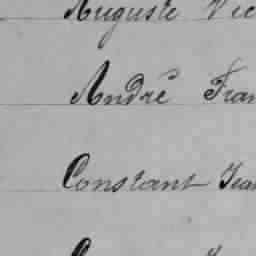 Auguste Vic
André Fran
Constant Jean